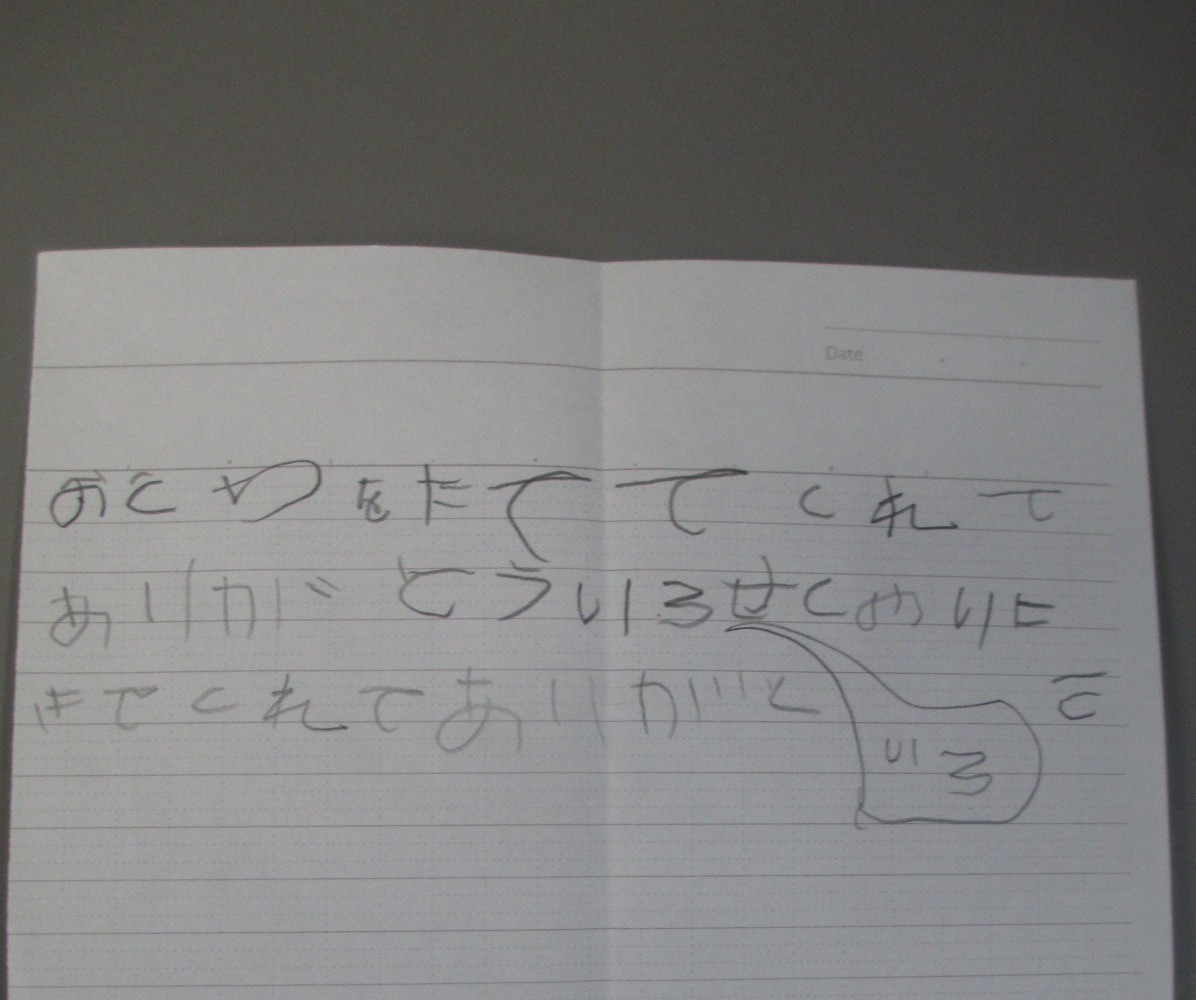 Date
おこめをたててくれて
ありがどういろせくめりに
きてくれてありがどう
いろ